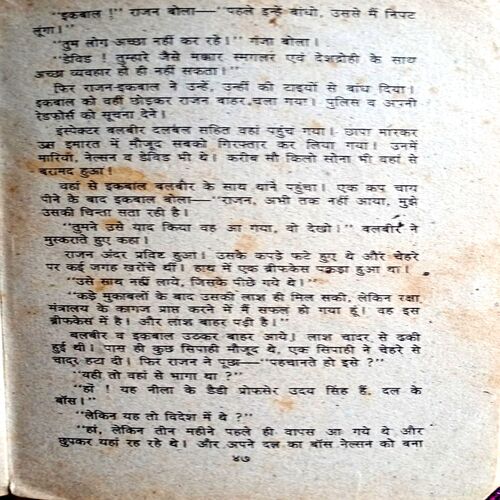 "इकबाल !" राजन बोला—"पहले इन्हें बांधो, उससे मैं निपट
लूंगा।"
"तुम लोग अच्छा नहीं कर रहे।" गंजा बोला।
"डेविड ! तुम्हारे जैसे मक्कार स्मगलर एवं देशद्रोही के साथ
अच्छा व्यवहार हो ही नहीं सकता।"
फिर राजन-इकबाल ने उन्हें, उन्हीं की टाइयों से बांध दिया।
इकबाल को वहीं छोड़कर राजन बाहर चला गया। पुलिस व अपनी
रेडफोर्स को सूचना देने।
इंस्पेक्टर बलबीर दलबल सहित वहां पहुंच गया। छापा मारकर
उस इमारत में मौजूद सबको गिरफ्तार कर लिया गया। उनमें
मारिया, नेल्सन व डेविड भी थे। करीब सौ किलो सोना भी वहां से
बरामद हुआ।
वहां से इकबाल बलबीर के साथ थाने पहुंचा। एक कप चाय
पीने के बाद इकबाल बोला—"राजन, अभी तक नहीं आया, मुझे
उसकी चिन्ता सता रही है।
"तुमने उसे याद किया वह आ गया, वो देखो।" बलबीर ने
मुस्कराते हुए कहा।
राजन अंदर प्रविष्ट हुआ। उसके कपड़े फटे हुए थे और चेहरे
पर कई जगह खरोंचें थीं। हाथ में एक ब्रीफकेस पकड़ा हुआ था।
"उसे साथ नहीं लाये, जिसके पीछे गये थे।"
"कड़े मुकाबलों के बाद उसकी लाश ही मिल सकी, लेकिन रक्षा
मंत्रालय के कागज प्राप्त करने में मैं सफल हो गया हूं। वह इस
ब्रीफकेस में है। और लाश बाहर पड़ी है।"
बलबीर व इकबाल उठकर बाहर आये। लाश चादर से ढकी
हुई थी। पास ही कुछ सिपाही मौजूद थे, एक सिपाही ने चेहरे से
चादर हटा दी। फिर राजन ने पूछा—"पहचानते हो इसे ?"
"यही तो वहां से भागा था ?"
"हां ! यह नीला के डैडी प्रोफेसर उदय सिंह हैं, दल के
बॉस।"
"लेकिन यह तो विदेश में थे ?"
"हां, लेकिन तीन महीने पहले ही वापस आ गये थे और
छुपकर यहां रह रहे थे। और अपने दल का बॉस नेल्सन को बना
४७